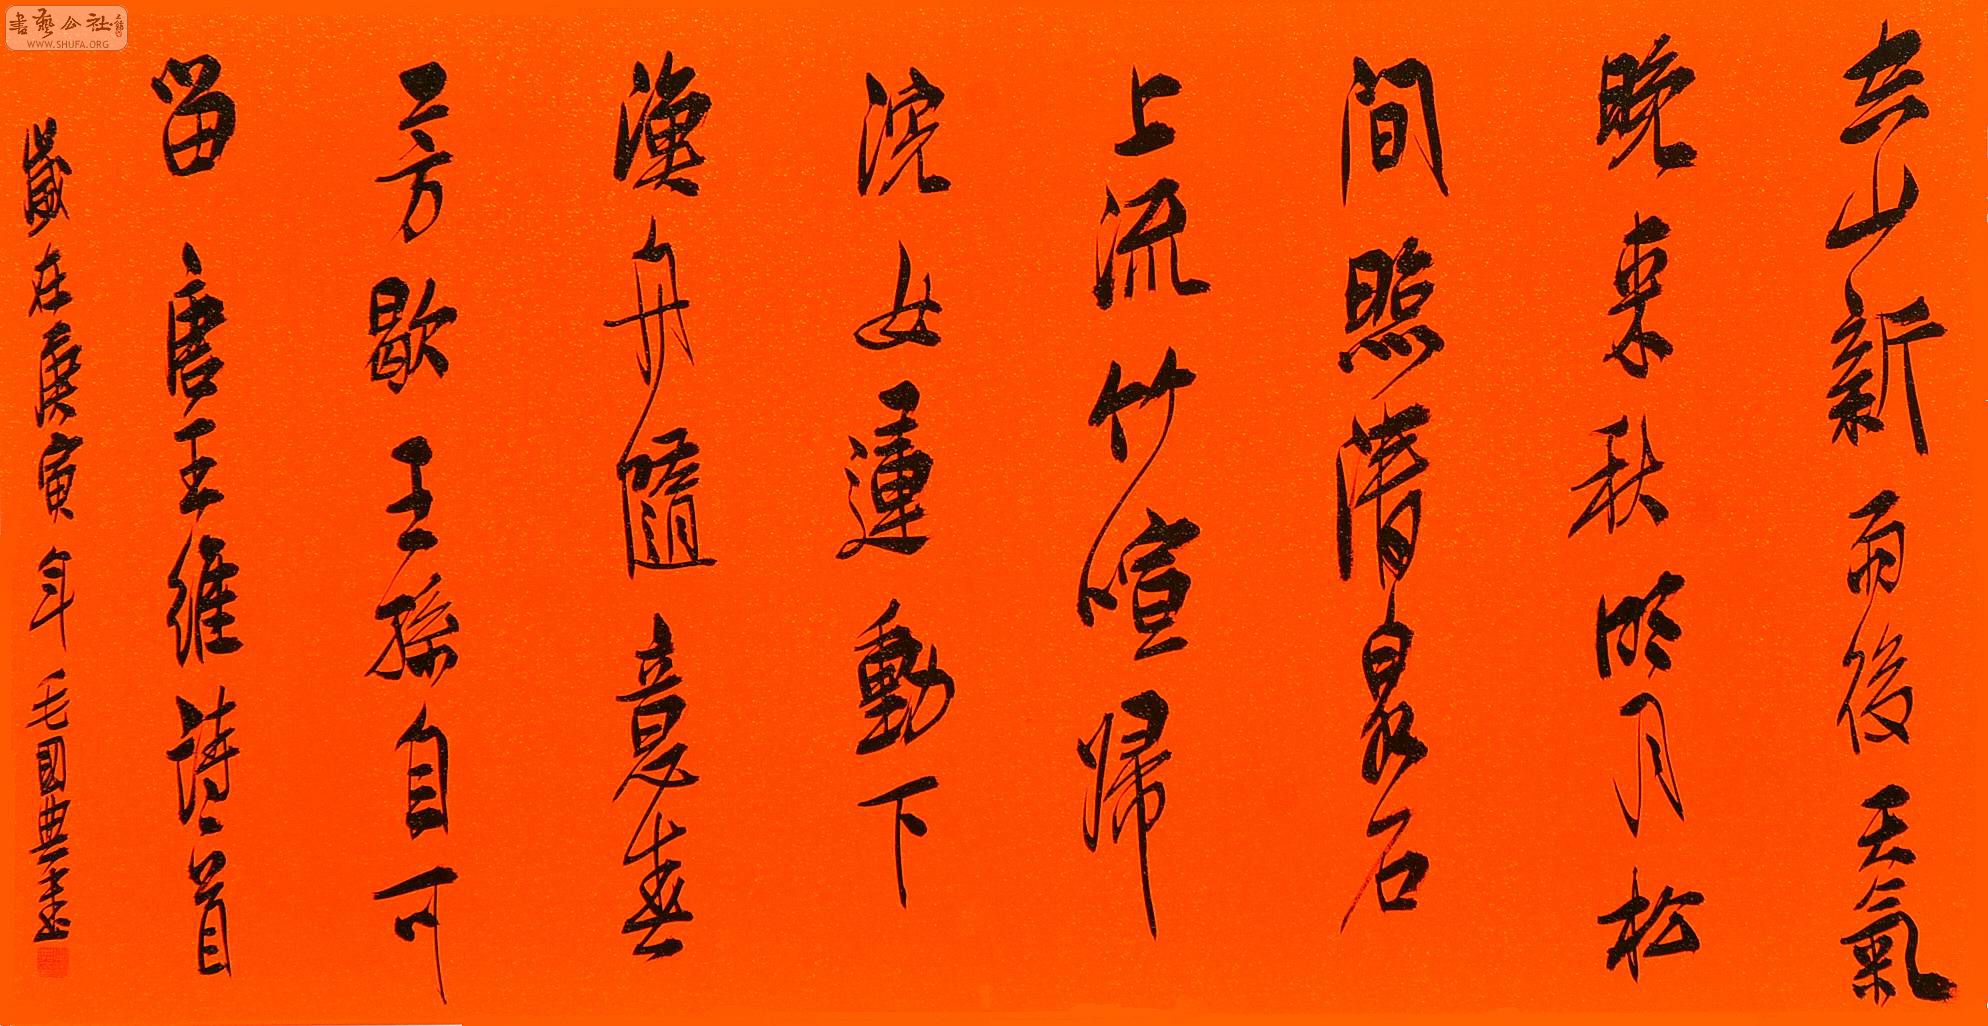 空山新雨後天氣
晚來秋明月松
間照清泉石
上流竹喧歸
浣女蓮動下
漁舟隨意春
芳歇王孫自可
留 唐王維詩一首
歲在庚寅年毛國典書
書藝公社
WWW.SHUFA.ORG